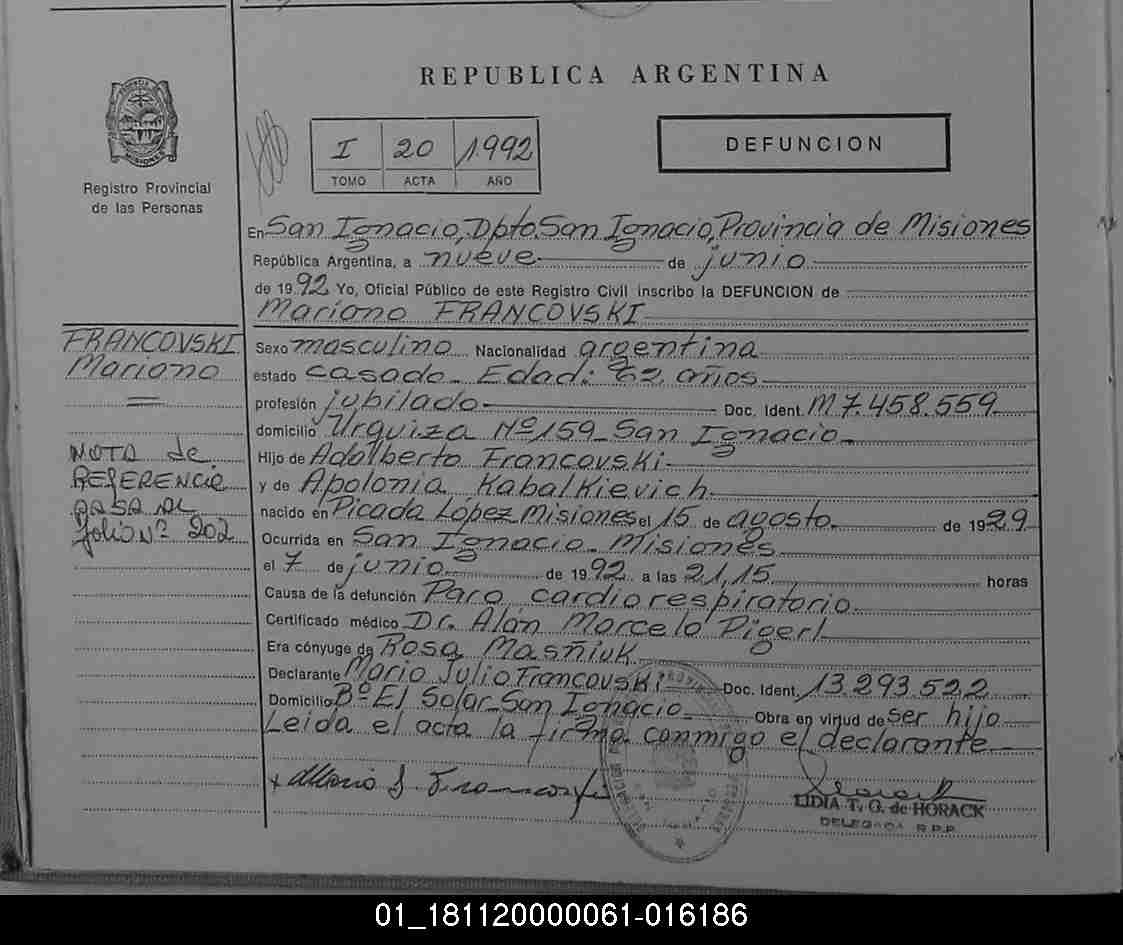 REPUBLICA ARGENTINA
PROVINCIA DE MISIONES
Registro Provincial
de las Personas
I 20 1.992
TOMO ACTA AÑO
DEFUNCION
En San Ignacio, Dpto. San Ignacio, Provincia de Misiones
República Argentina, a nueve de junio
de 1992 Yo, Oficial Público de este Registro Civil inscribo la DEFUNCION de
Mariano FRANCOVSKI
FRANCOVSKI
Mariano
NOTA de
REFERENCIA
PASA AL
folio Nº 202
Sexo masculino Nacionalidad argentina
estado casado - Edad: 62 años
profesión jubilado Doc. Ident. M 7.458.559
domicilio Urquiza Nº 159 - San Ignacio -
Hijo de Adalberto Francovski
y de Apolonia Kabalkievich
nacido en Picada López Misiones el 15 de agosto de 1929
Ocurrida en San Ignacio - Misiones
el 7 de junio de 1992 a las 21,15 horas
Causa de la defunción Paro cardiorespiratorio
Certificado médico Dr. Alán Marcelo Pigerl
Era cónyuge de Rosa Masñiuk
Declarante Mario Julio Francovski Doc. Ident. 13.293.522
Domicilio Bº El Solar - San Ignacio - Obra en virtud de ser hijo
Leida el acta la firma conmigo el declarante
LIDIA T. O. de HORACK
DELEGADA R.P.P.
01_181120000061-016186